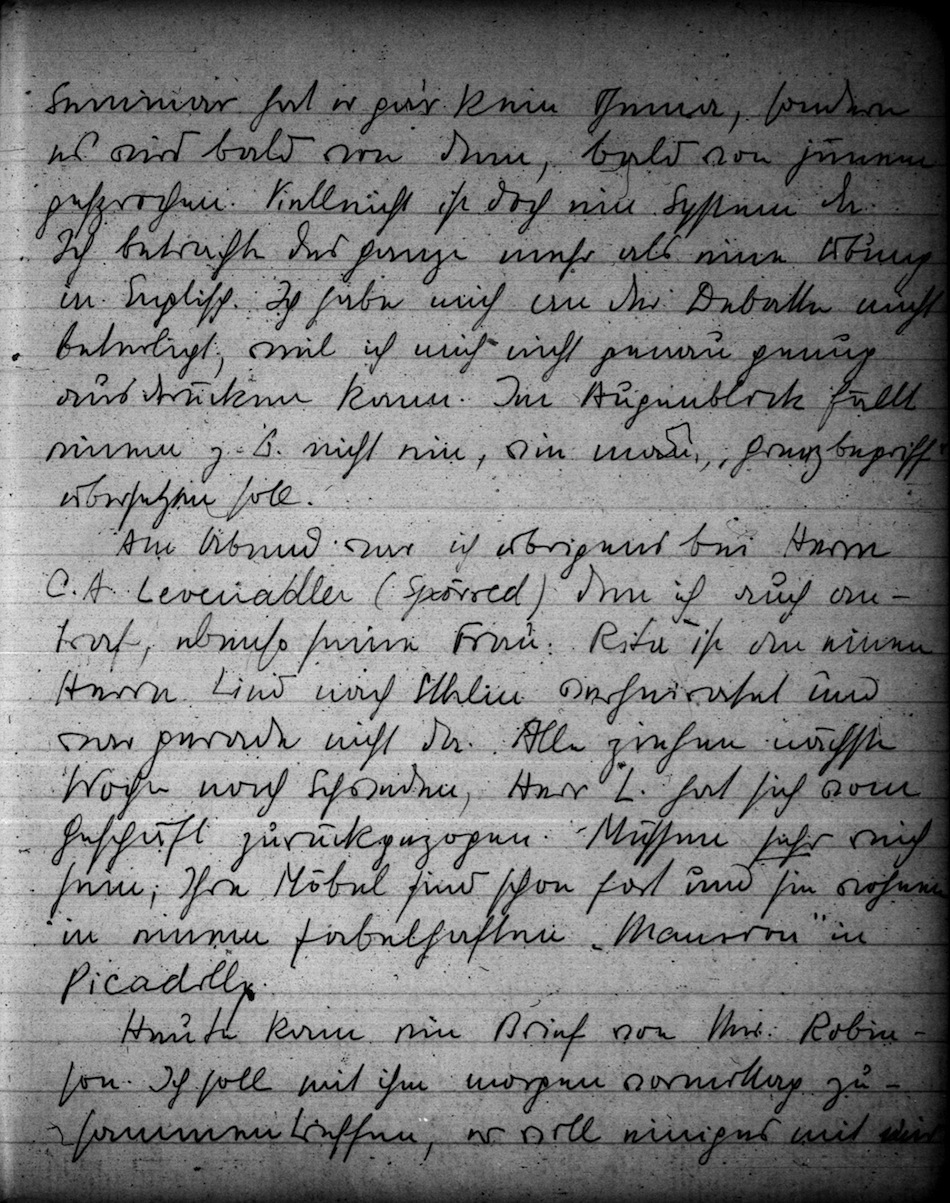 Seminar hat er gar kein Thema, sondern
es wird bald von dem, bald von jenem
gesprochen. Vielleicht ist doch ein System da.
Ich betrachte das ganze mehr als eine Übung
in Englisch. Ich habe mich an der Debatte nicht
beteiligt, weil ich mich nicht genau genug
ausdrücken kann. Im Augenblick fällt
einem z. B. nicht ein, wie man „Grenzbegriff"
übersetzen soll.
Am Abend war ich übrigens bei Herrn
C. A. Levenadler (Spörred) den ich auch an-
traf, ebenso seine Frau. Rita ist an einen
Herrn Lind nach verheiratet und
war gerade nicht da. Alle ziehen nächste
Woche nach Schweden, Herr L. hat sich vom
Geschäft zurückgezogen. Müssen sehr reich
sein; Ihre Möbel sind schon fort und sie wohnen
in einem fabelhaften „Mansion" in
Picadilly.
Heute kam ein Brief von Mr. Robin-
son. Ich soll mit ihm morgen vormittag zu-
sammentreffen, er will einiges mit mir